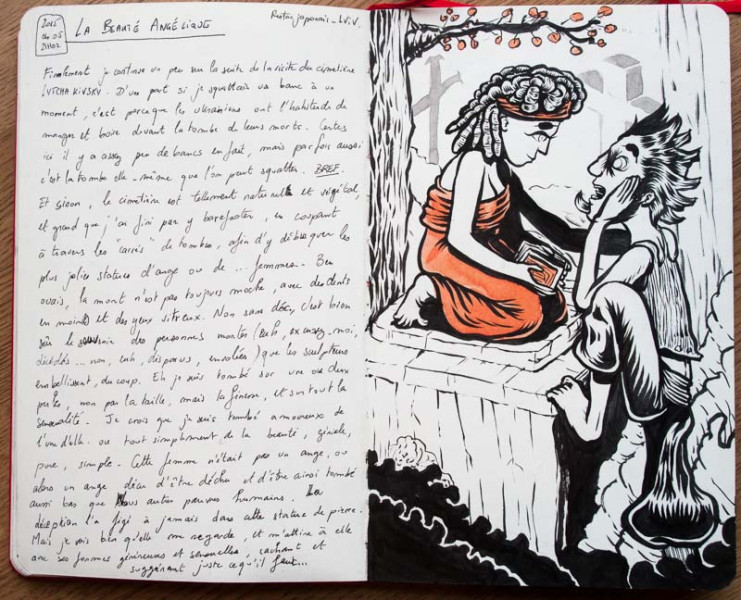 2015
04 05
21H02
LA BEAUTÉ ANGÉLIQUE
Restau japonais - LVIV.
Finalement je continue un peu sur la suite de la visite du cimetière
LYTCHAKIVSKY. D'une part si je squattais un banc à un
moment, c'est parce que les ukrainiens ont l'habitude de
manger et boire devant la tombe de leurs morts. Certes
ici il y a assez peu de bancs en fait, mais parfois aussi
c'est la tombe elle-même que l'on peut squatter. BREF.
Et sinon, le cimetière est tellement naturel et végétal,
et grand que j'ai fini par y barefooter, en coupant
à travers les "carrés" de tombes, afin d'y débusquer les
plus jolies statues d'ange ou de ... femmes. Ben
ouais, la mort n'est pas toujours moche avec des dents
en moins et des yeux vitreux. Non sans déc, c'est bien
sûr le des personnes mortes (euh, excusez-moi,
décédés... non, euh, disparus, envolées) que les sculpteurs
embellissent, du coup. Et je suis tombé sur une ou deux
par la taille, mais la finesse, et surtout la
sensualité. Je crois que je suis tombé amoureux de
l'une d'elle. ou tout simplement de la beauté, géniale,
pure, simple. Cette femme n'était pas un ange, ou
alors un ange déçu d'être déchu et d'être ainsi tombé
aussi bas que nous autres pauvres humains. La
déception l'a figé à jamais dans cette statue de pierre.
Mais je vois bien qu'elle me regarde, et m'attire à elle
avec ses formes généreuses et sensuelles, cachant et
suggérant juste ce qu'il faut...